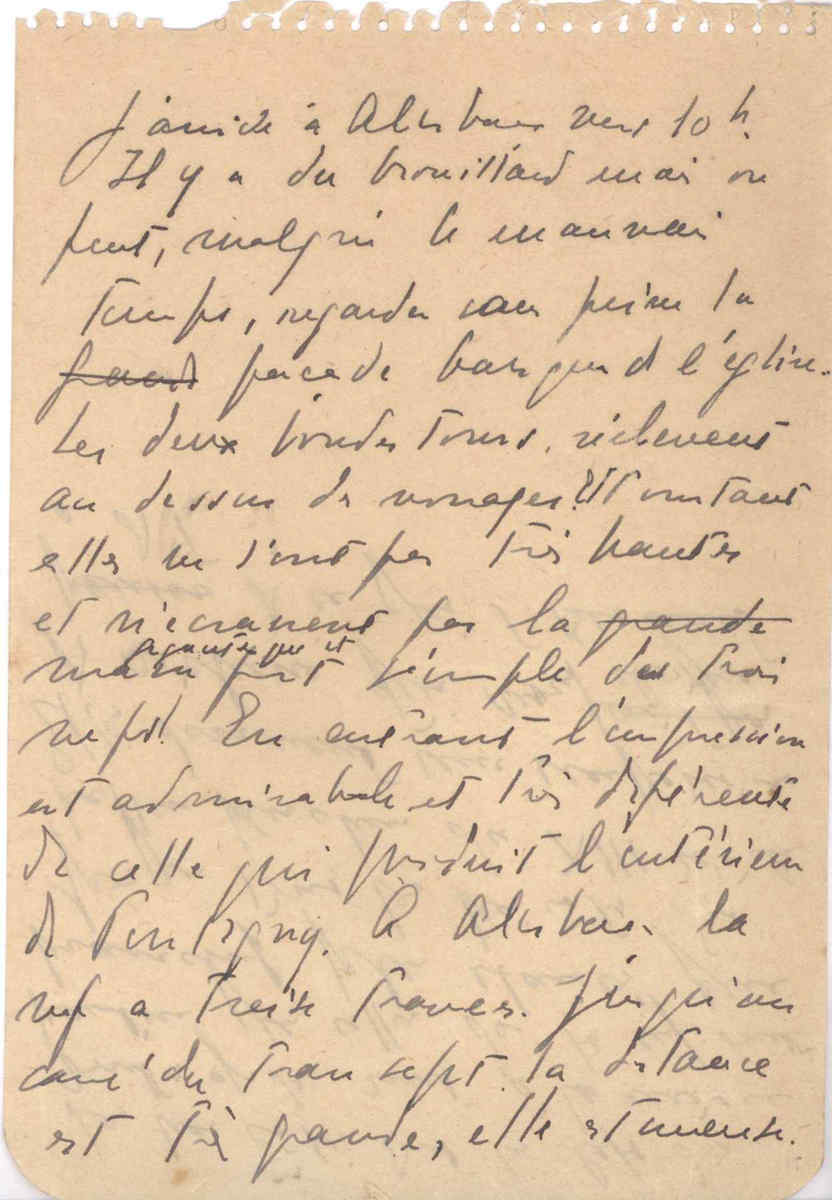 J'arrive à Alcobaca vers 10 h.
Il y a du brouillard mais on
peut, malgré le mauvais
temps, regarder sans peine la
façade baroque de l'église.
Les deux tours s'élèvent
au dessus des nuages. Pourtant
elles ne sont pas très hautes
et n'écrasent pas la grande
gigantesque et
simple des trois
nefs! En entrant l'impression
est admirable et très différente
de celle que produit l'intérieur
de Pontigny. A Alcobaca la
nef a treize travées. Jusqu'au
carré du transept la distance
est très grande, elle est immense.